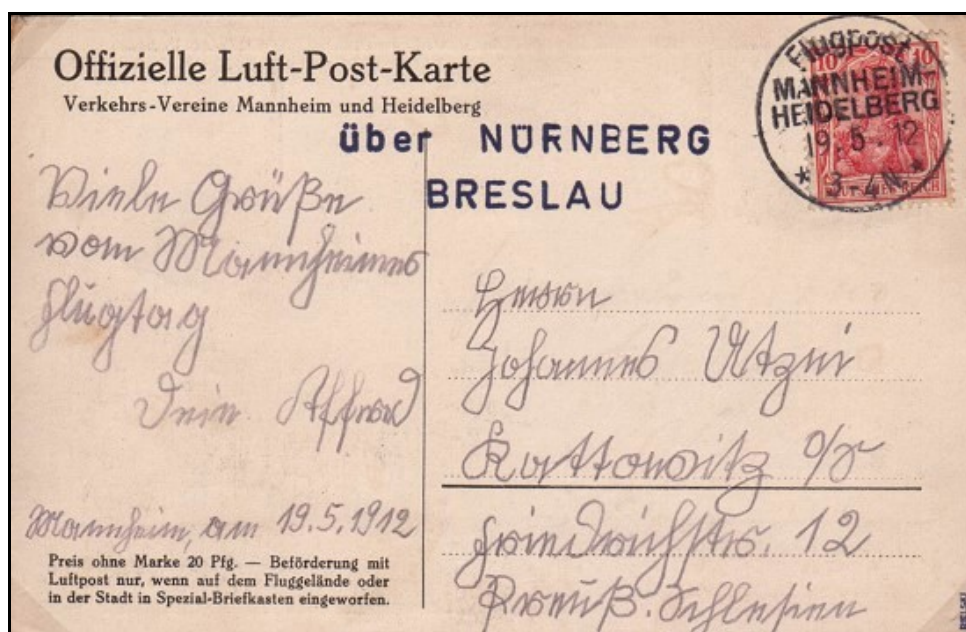 Offizielle Luft-Post-Karte
Verkehrs-Vereine Mannheim und Heidelberg
über NÜRNBERG
BRESLAU
Flugpost
MANNHEIM-
HEIDELBERG
19.5.12
* 3-4N *
10 10
Viele Grüße
vom Mannheimer
Flugtag
Dein
Mannheim, am 19.5.1912
Preis ohne Marke 20 Pfg. — Beförderung mit
Luftpost nur, wenn auf dem Fluggelände oder
in der Stadt in Spezial-Briefkasten eingeworfen.
Herrn
Johannes
Kattowitz o/S
Friedrichstr. 12
Preuß. Schlesien
BIELSKI